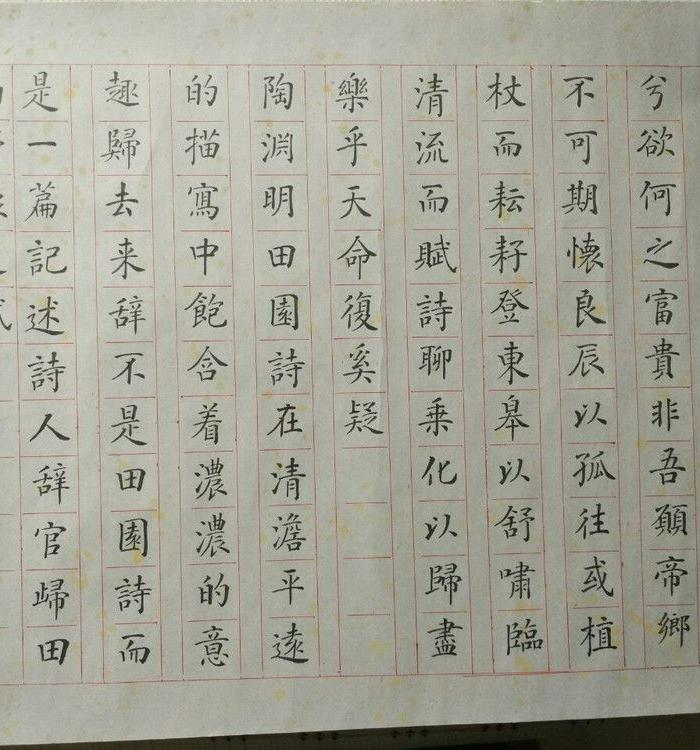 兮欲何之富貴非吾願帝鄉
不可期懷良辰以孤往或植
杖而耘耔登東皋以舒嘯臨
清流而賦詩聊乗化以歸盡
樂乎天命復奚疑
陶渊明田園詩在清澹平遠
的描寫中飽含着濃濃的意
趣歸去来辞不是田園詩而
是一篇記述詩人辞官歸田